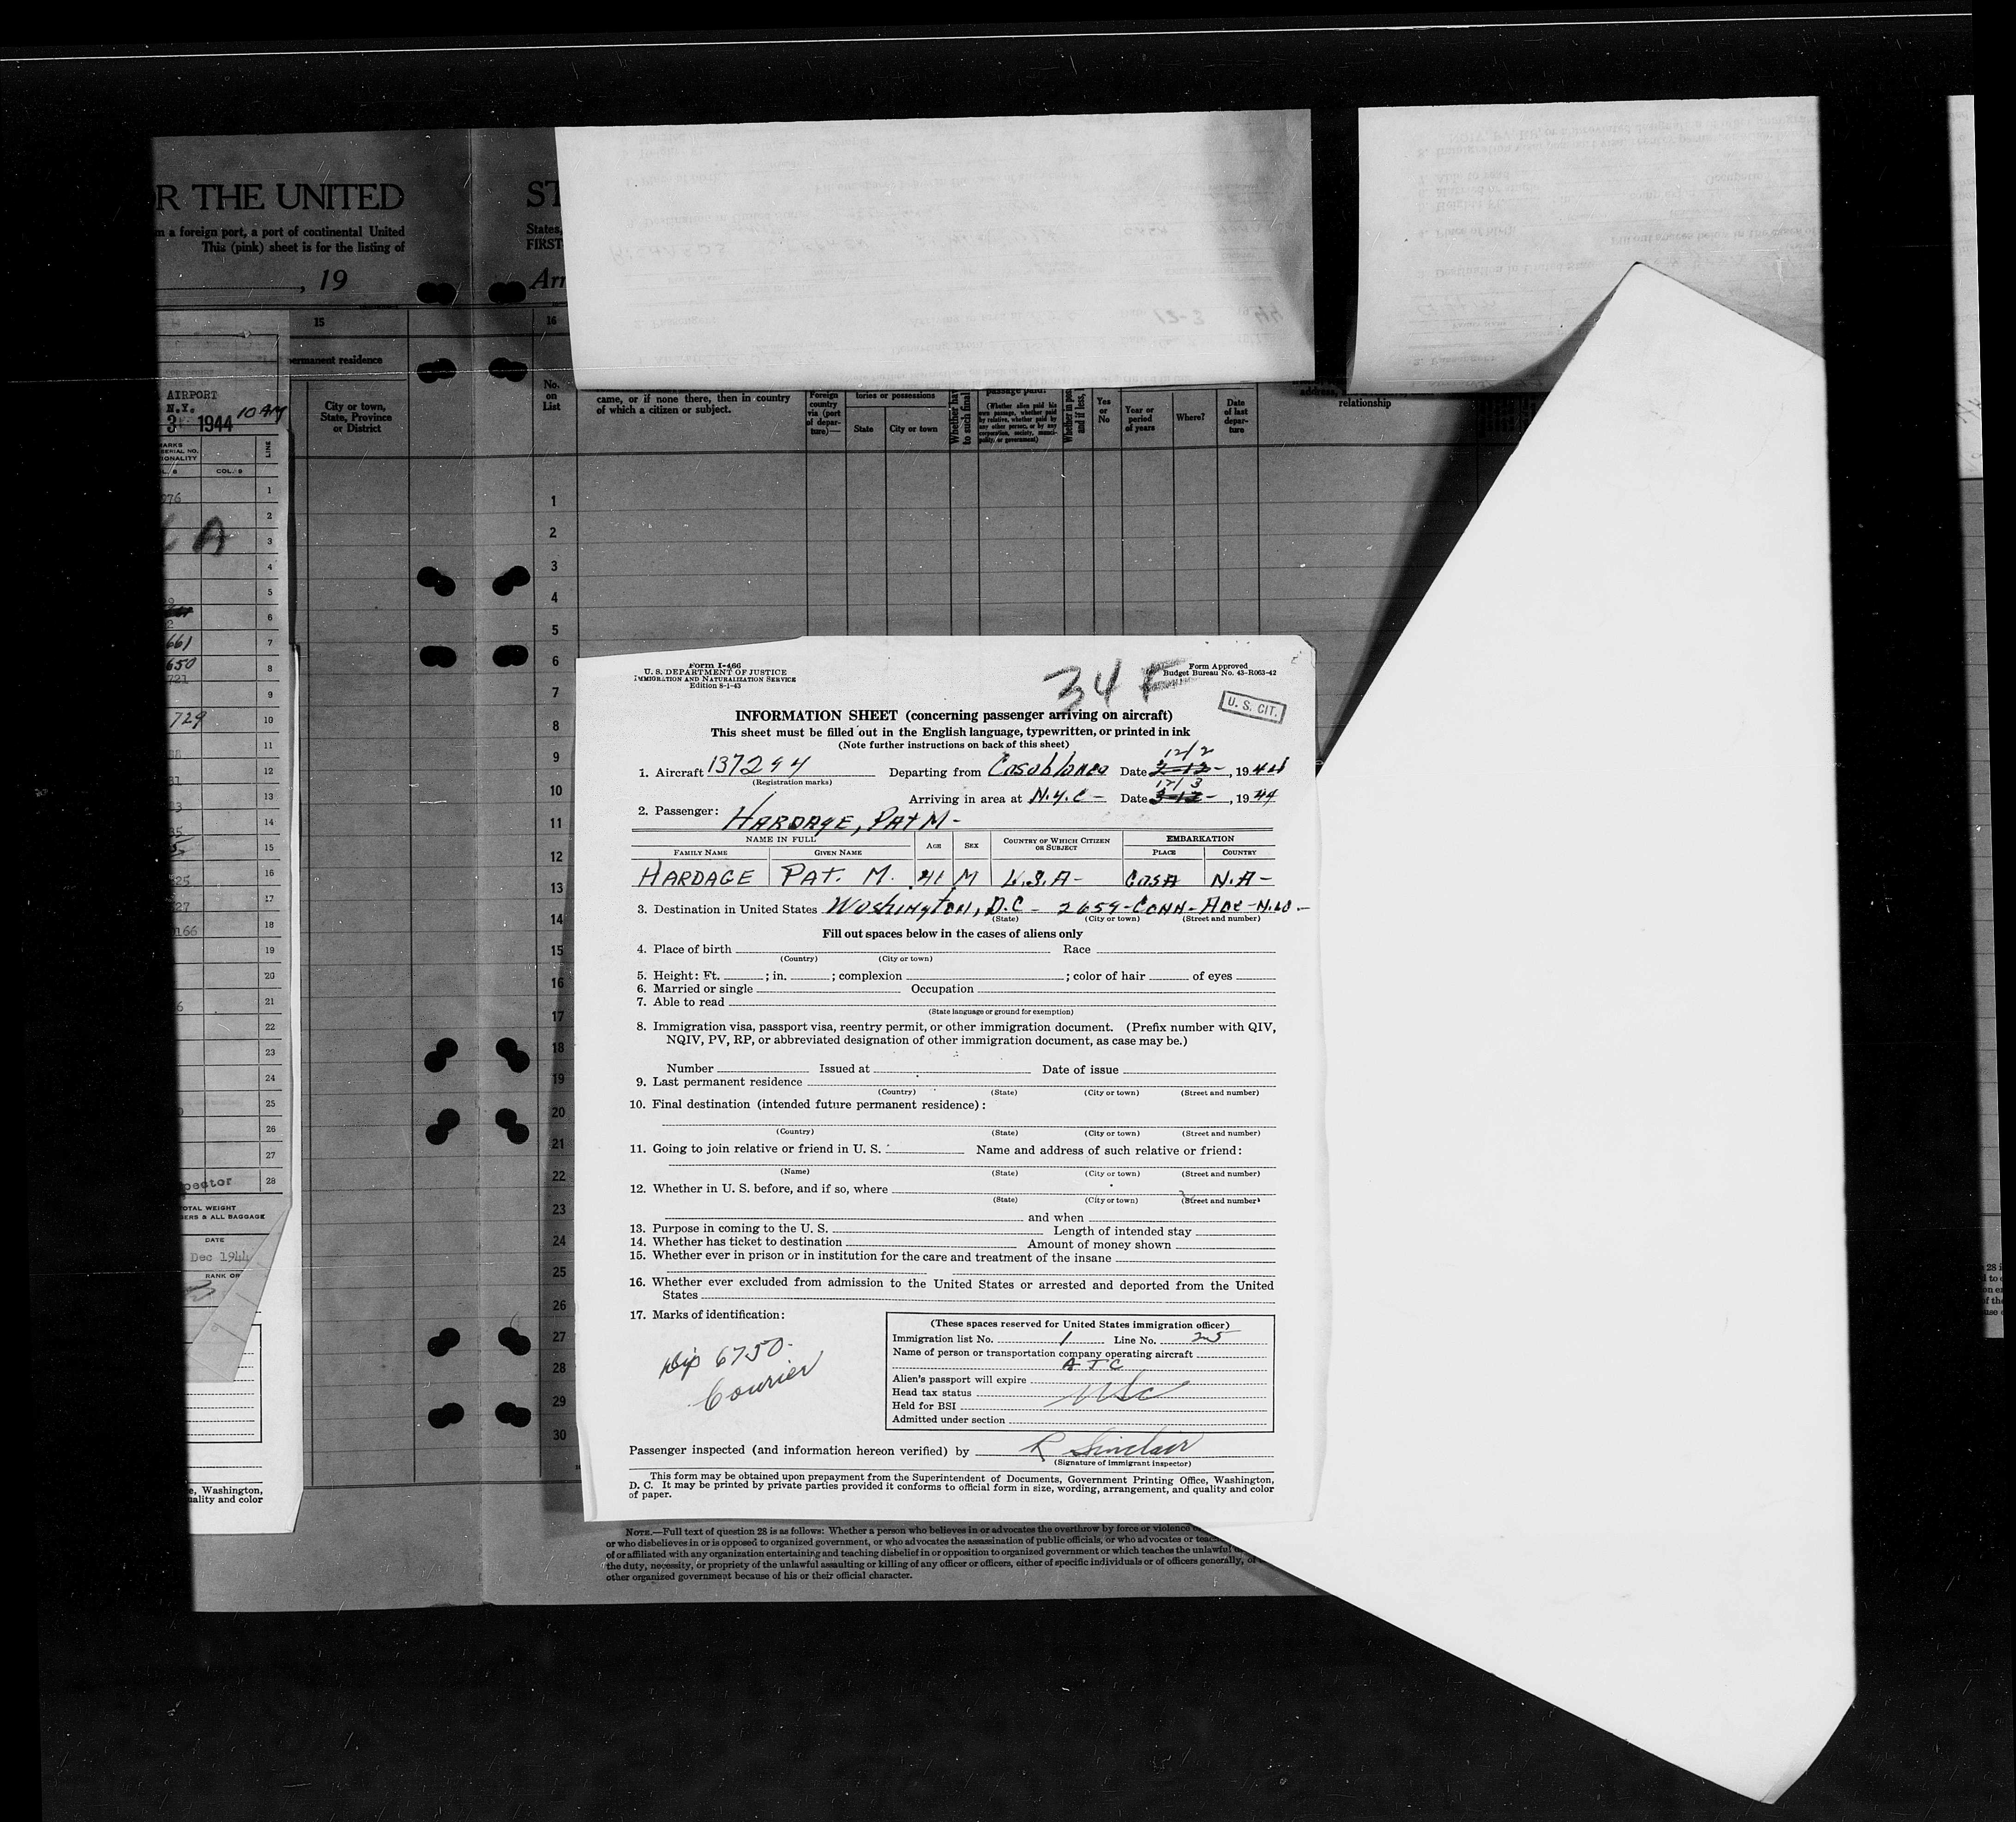 R THE UNITED
m a foreign port, a port of continental United
This (pink) sheet is for the listing of
, 19
15
permanent residence
City or town,
State, Province
or District
AIRPORT
N.Y.
3 1944 10 AM
LINE
COL. 9
976
A
661
650
721
729
166
1
2
3
4
5
6
7
8
9
10
11
12
13
14
15
16
17
18
19
20
21
22
23
24
25
26
27
28
pector
TOTAL WEIGHT
GERS & ALL BAGGAGE
DATE
Dec 1944
RANK OR
e, Washington,
uality and color
ST
States,
FIRST
Arr
16
No.
on
List
came, or if none there, then in country
of which a citizen or subject.
Foreign
country
via (port
of depar-
ture)—
tories or possessions
State
City or town
Whether hav
to such final
passage paid?
(Whether alien paid his
own passage, whether paid
by relative, whether paid by
any other person, or by any
corporation, society, munici-
pality, or government)
Whether in pos
and if less,
Yes
or
No
Year or
period
of years
Where?
Date
of last
depar-
ture
address,
relationship
1
2
3
4
5
6
7
8
9
10
11
12
13
14
15
16
17
18
19
20
21
22
23
24
25
26
27
28
29
30
12-3 44
Form I-466
U. S. DEPARTMENT OF JUSTICE
IMMIGRATION AND NATURALIZATION SERVICE
Edition 8-1-43
34 F
Form Approved
Budget Bureau No. 43-R063-42
U. S. CIT.
INFORMATION SHEET (concerning passenger arriving on aircraft)
This sheet must be filled out in the English language, typewritten, or printed in ink
(Note further instructions on back of this sheet)
1. Aircraft 137294 Departing from Casablanca Date 12/2, 1944
(Registration marks)
Arriving in area at N.Y.C- Date 12/3, 1944
2. Passenger: HARDAGE, PAT M-
NAME IN FULL
FAMILY NAME GIVEN NAME AGE SEX COUNTRY OF WHICH CITIZEN OR SUBJECT EMBARKATION PLACE COUNTRY
HARDAGE PAT. M. 41 M U.S.A- CASA N.A-
3. Destination in United States Washington, D.C - 2659-CONN-Ave-N.W-
(State) (City or town) (Street and number)
Fill out spaces below in the cases of aliens only
4. Place of birth Race
(Country) (City or town)
5. Height: Ft. ; in. ; complexion ; color of hair of eyes
6. Married or single Occupation
7. Able to read
(State language or ground for exemption)
8. Immigration visa, passport visa, reentry permit, or other immigration document. (Prefix number with QIV,
NQIV, PV, RP, or abbreviated designation of other immigration document, as case may be.)
Number Issued at Date of issue
9. Last permanent residence
(Country) (State) (City or town) (Street and number)
10. Final destination (intended future permanent residence):
(Country) (State) (City or town) (Street and number)
11. Going to join relative or friend in U. S. Name and address of such relative or friend:
(Name) (State) (City or town) (Street and number)
12. Whether in U. S. before, and if so, where
(State) (City or town) (Street and number)
and when
13. Purpose in coming to the U. S. Length of intended stay
14. Whether has ticket to destination Amount of money shown
15. Whether ever in prison or in institution for the care and treatment of the insane
16. Whether ever excluded from admission to the United States or arrested and deported from the United
States
17. Marks of identification:
Dip 6750-
Courier
(These spaces reserved for United States immigration officer)
Immigration list No. 1 Line No. 25
Name of person or transportation company operating aircraft
A T C
Alien's passport will expire
Head tax status USC
Held for BSI
Admitted under section
Passenger inspected (and information hereon verified) by R Sinclair
(Signature of immigrant inspector)
This form may be obtained upon prepayment from the Superintendent of Documents, Government Printing Office, Washington,
D. C. It may be printed by private parties provided it conforms to official form in size, wording, arrangement, and quality and color
of paper.
NOTE.—Full text of question 28 is as follows: Whether a person who believes in or advocates the overthrow by force or violence
or who disbelieves in or is opposed to organized government, or who advocates the assassination of public officials, or who advocates or teac
of or affiliated with any organization entertaining and teaching disbelief in or opposition to organized government or which teaches the unlawful
the duty, necessity, or propriety of the unlawful assaulting or killing of any officer or officers, either of specific individuals or of officers generally, of
other organized government because of his or their official character.